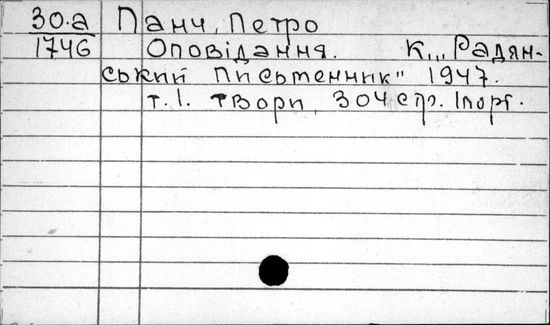 30.а Панч, Петро
1746 Оповідання. К., „Радян-
ський письменник" 1947.
т. 1. твори, 304 стр. 1 порт.